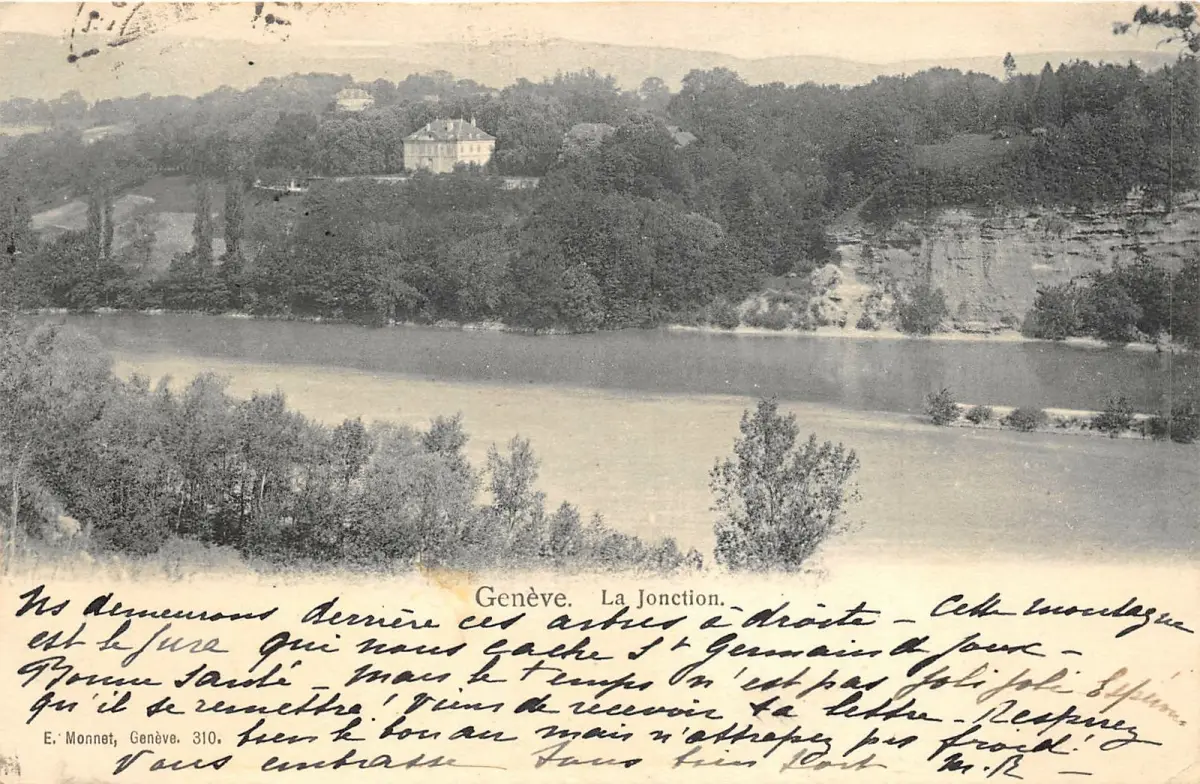 Genève. La Jonction.
Ns demeurons derrière ces arbres à droite - Cette montagne
est le Jura qui nous cache St Germain d Joux -
Bonne Santé - Mais le temps n'est pas joli joli Espérons
qu'il se remettra! Viens de recevoir ta lettre - Respirez
E. Monnet, Genève. 310.
bien le bon air mais n'attrapez pas froid!
Vous embrasse tous bien fort M. R -